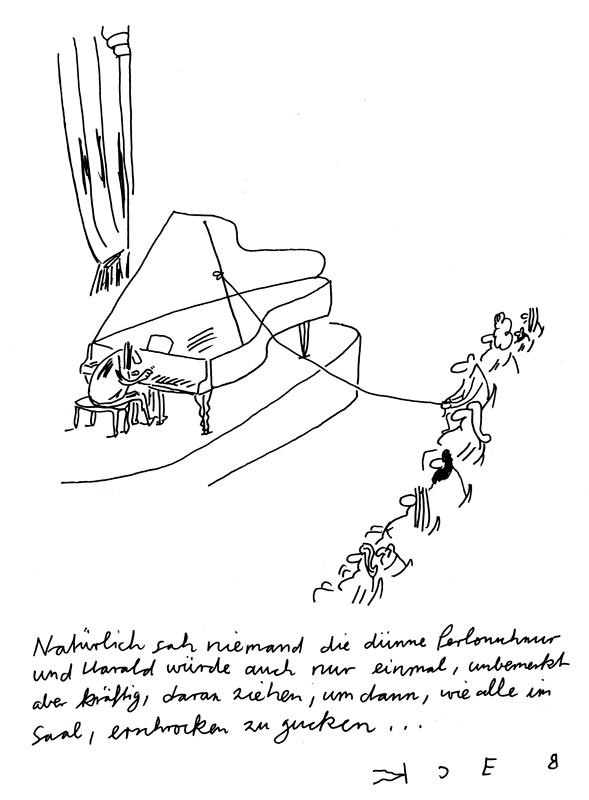 Natürlich sah niemand die dünne Perlonschnur
und Harald würde auch nur einmal, unbemerkt
aber kräftig, daran ziehen, um dann, wie alle im
Saal, erschrocken zu gucken ...